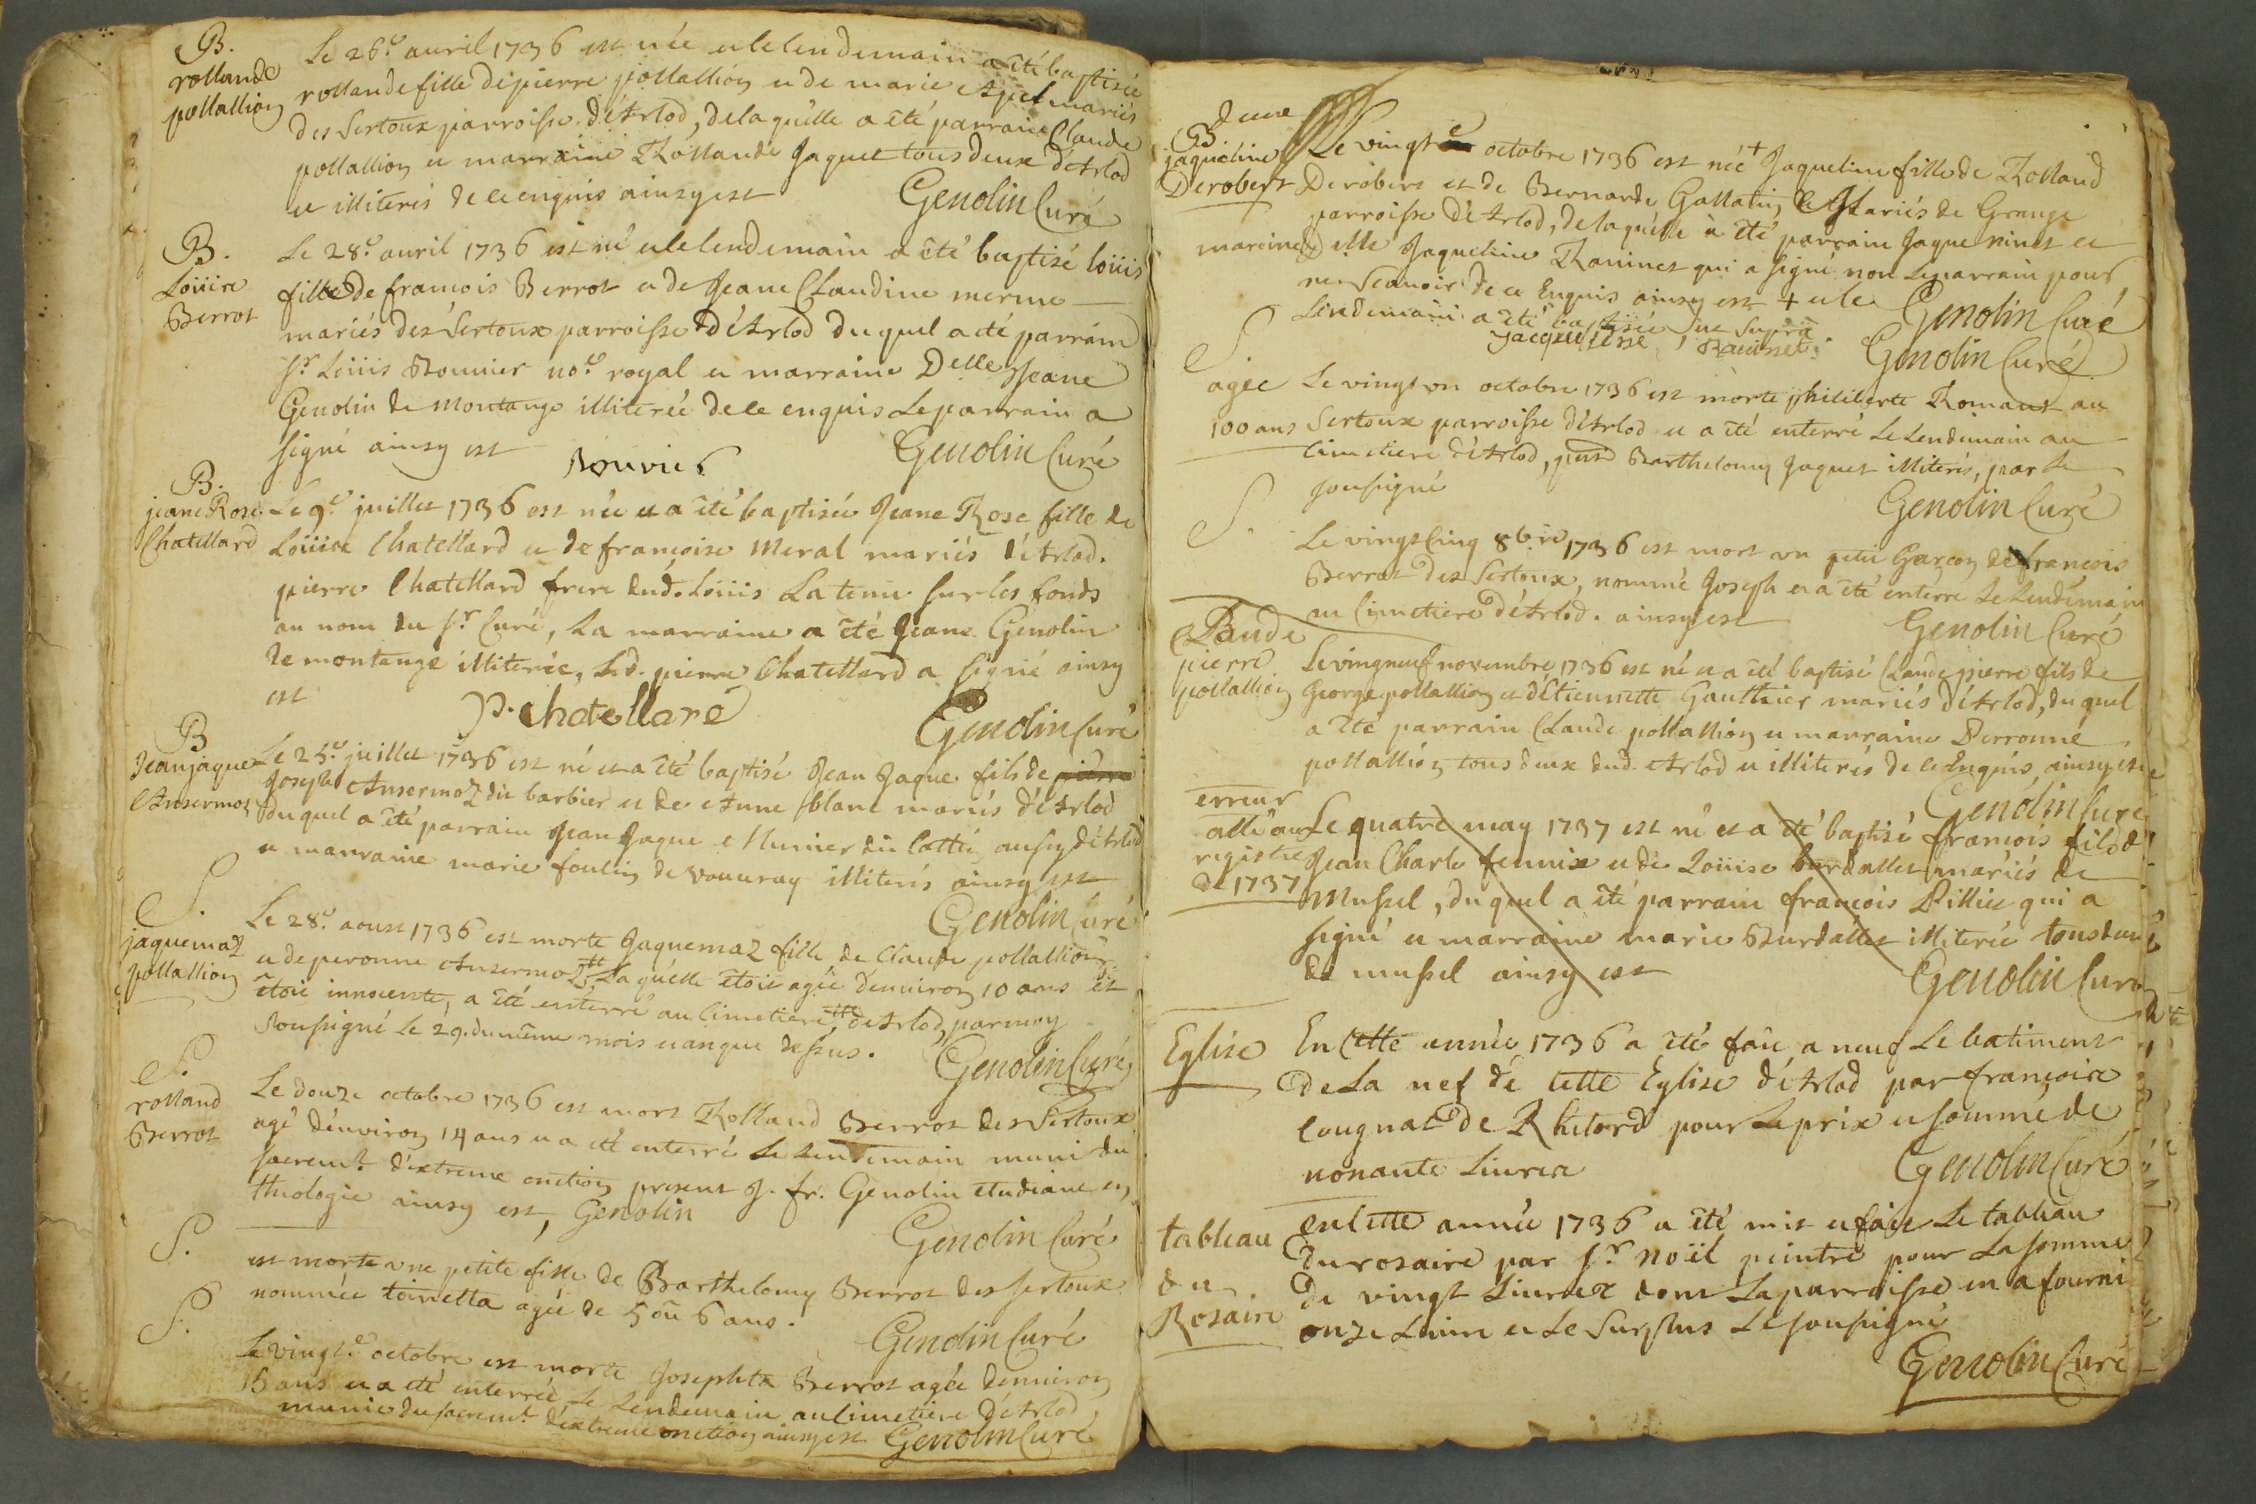 B.
rollande
pollallion
Le 26.e auril 1736 est née et le lendemain a été baptisée
rollande fille de pierre pollallion et de marie mariés
des Sertoux parroisse d'Arlod, de laquelle a été parrain Claude
pollallion et marraine Rollande Jaquet tous deux d'Arlod
et illiterés de ce enquis ainsy est
Genolin Curé
B.
Loüise
Berrot
Le 28.e auril 1736 est né et le lendemain a été baptisé loüis
fille de francois Berrot et de Jeane Claudine merme
mariés des Sertoux parroisse d'Arlod du quel a été parrain
sr. Loüis Bouuier no.e royal et marraine Delle Jeane
Genolin de Montange illiterée de ce enquis Le parrain a
signé ainsy est
Bouvier
Genolin Curé
B.
jeane Rose
Chatellard
Le 9.e juillet 1736 est née et a été baptisée Jeane Rose fille de
Loüise Chatellard et de francoise Meral mariés d'Arlod.
pierre Chatellard frere dud. Loüis La tenu sur les fonds
au nom du sr. Curé, La marraine a été Jeane Genolin
de montange illiterée, Led. pierre Chatellard a signé ainsy
est
P. chatellard
Genolin Curé
B
Jean jaque
Ansermoz
Le 25.e juillet 1736 est né et a été baptisé Jean Jaque fils de pierre
Joseph Ansermoz dit barbier et de Anne blanc mariés d'Arlod
du quel a été parrain Jean Jaque Munier dit Cattié aussy d'Arlod
et marraine marie foulin de vouuray illiterés ainsy est
Genolin Curé
S.
jaquemaz
pollallion
Le 28.e aoust 1736 est morte Jaquemaz fille de Claude pollallion
et de peronne Ansermoz La quelle étoit agée d'enuiron 10 ans et
étoit innocente, a été enterré au Cimetiere d'Arlod, par moy
Soussigné le 29. du même mois et an que dessus.
Genolin Curé
S.
rolland
Berrot
Le douze octobre 1736 est mort Rolland Berrot des Sertoux
agé d'enuiron 14 ans et a été enterré Le Lendemain muni du
sacremt. d'extreme onction present J. fr. Genolin etudiant en
theologie ainsy est, Genolin
Genolin Curé
S.
est morte une petite fille de Barthelomy Berrot des sertoux
nommée toinetta agée de 5 ou 6 ans.
Genolin Curé
S.
Le vingt.e octobre est morte Josephta Berrot agée d'enuiron
15 ans et a été enterrée Le Lendemain au Cimetiere d'Arlod
munie du sacremt. d'extreme onction ainsy est Genolin Curé
d une
B
jaqueline
Derobert
Le vingt octobre 1736 est née + Jaqueline fille de Rolland
Derobert et de Bernarde Gallatin Mariés de Grange
parroisse d'Arlod, de laquelle a été parrain Jaque ninet et
marraine d elle Jaqueline Raninet qui a signé non Le parrain pour
ne Scauoir de ce Enquis ainsy est + et le
Lendemain a été baptisée ut Supra
Genolin Curé
Jacqueline Raninet
Genolin Curé
S.
agée
100 ans
Le vingt un octobre 1736 est morte philiberte Romant au
Sertoux parroisse d'Arlod et a été enterré Le Lendemain au
Cimetiere d'Arlod, pnt Barthelomy Jaquet illiterés, par Le
sousigné
Genolin Curé
S.
Le vingt Cinq 8bre 1736 est mort un petit Garcon de francois
Berrot des Sertoux, nommé Joseph et a été enterre Le Lendemain
au Cimetiere d'Arlod. ainsy est
Genolin Curé
B Claude
pierre
pollallion
Le vingneuf novembre 1736 est né et a été baptisé Claude pierre fils de
George pollallion et d'Etiennette Gauthier mariés d'Arlod, du quel
a été parrain Claude pollallion et marraine Perronne
pollallion tous deux dud. Arlod et illiterés de ce Enquis ainsy est
Genolin Curé
erreur
allé au
registre
de 1737
Le quatre may 1737 est né et a été baptisé francois fils de
Jean Charle fennix et de Loüise burdallet mariés de
Mussel, du quel a été parrain francois Pilliet qui a
signé et marraine marie Burdallet illiterée tous deux
de mussel ainsy est
Genolin Curé
Eglise
En Cette année 1736 a été fait a neuf Le batiment
de La nef de cette Eglise d'Arlod par francoise
cougnat de Rhetord pour Le prix et somme de
nonante Liures
Genolin Curé
tableau
du
Rosaire
en cette année 1736 a été mis et fait Le tableau
du rosaire par sr. noël peintre pour La somme
de vingt Liures dont La parroisse en a fourni
onze Liure et Le Surplus Le sousigné
Genolin Curé